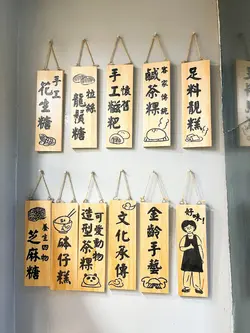 手工
花生糖
拉絲
龍鬚糖
懷舊
手工糍粑
客家傳統
鹹茶粿
足料靚糕
養生四物
芝麻糖
砵仔糕
可愛動物
造型茶粿
文化承傳
金齡手藝
好味!